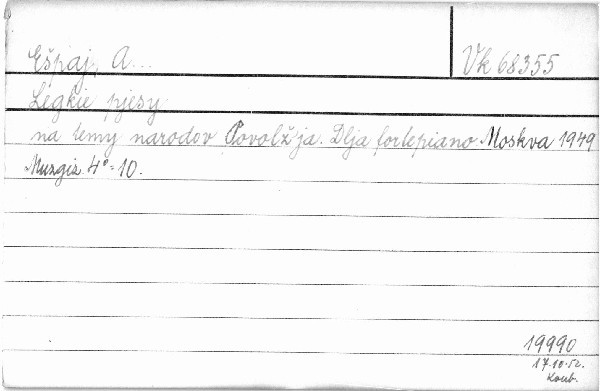 Ešpaj, A...
Vk 68355
Legkie pjesy
na temy narodov Povolž'ja. Dlja fortepiano. Moskva 1949
Muzgiz. 4°-10.
19990
17.10.52.
Koub.